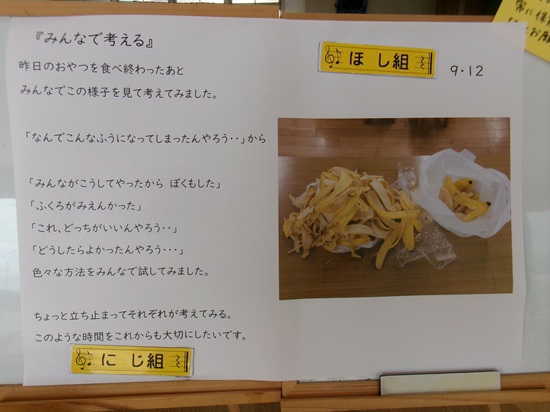 『みんなで考える』
昨日のおやつを食べ終わったあと
みんなでこの様子を見て考えてみました。
「なんでこんなふうになってしまったんやろう・・」から
「みんながこうしてやったから ぼくもした」
「ふくろがみえんかった」
「これ、どっちがいいんやろう・・」
「どうしたらよかったんやろう・・・」
色々な方法をみんなで試してみました。
ちょっと立ち止まってそれぞれが考えてみる。
このような時間をこれからも大切にしたいです。
にじ組
ほし組
9・12